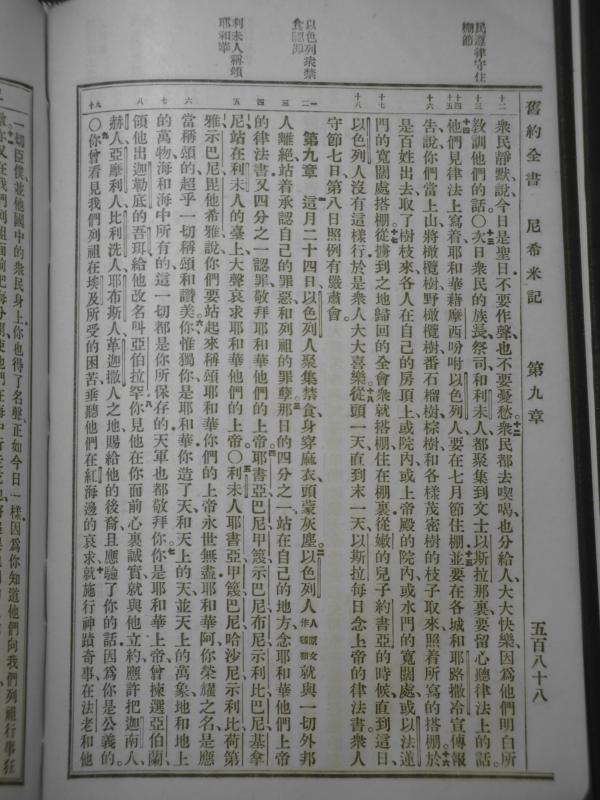 舊約全書 尼希米記 第九章 五百八十八
民遵律守住棚節
以色列衆禁食認罪
利未人稱頌耶和華
十二 衆民靜默說今日是聖日不要作聲也不要憂愁衆民都去喫喝也分給人大大快樂因爲他們明白所
十三 教訓他們的話○次日衆民的族長祭司和利未人都聚集到文士以斯拉那裏要留心聽律法上的話
十四 十五 他們見律法上寫着耶和華藉摩西吩咐以色列人要在七月節住棚並要在各城和耶路撒冷宣傳報
十六 告說你們當上山將橄欖樹野橄欖樹番石榴樹棕樹和各樣茂密樹的枝子取來照着所寫的搭棚於
是百姓出去取了樹枝來各人在自己的房頂上或院內或上帝殿的院內或水門的寬闊處或以法蓮
十七 門的寬闊處搭棚從擄到之地歸回的全會衆就搭棚住在棚裏從嫩的兒子約書亞的時候直到這日
十八 以色列人沒有這樣行於是衆人大大喜樂從頭一天直到末一天以斯拉每日念上帝的律法書衆人
守節七日第八日照例有嚴肅會
一 二 第九章 這月二十四日以色列人聚集禁食身穿麻衣頭蒙灰塵以色列人就與一切外邦
三 人離絕站着承認自己的罪惡和列祖的罪孽那日的四分之一站在自己的地方念耶和華他們上帝
四 的律法書又四分之一認罪敬拜耶和華他們的上帝耶書亞巴尼甲篾示巴尼布尼示利比巴尼基拿
五 尼站在利未人的臺上大聲哀求耶和華他們的上帝○利未人耶書亞甲篾巴尼哈沙尼示利比荷第
雅示巴尼毘他希雅說你們要站起來稱頌耶和華你們的上帝永世無盡耶和華阿你榮耀之名是應
六 當稱頌的超乎一切稱頌和讚美你惟獨你是耶和華你造了天和天上的天並天上的萬象地和地上
七 的萬物海和海中所有的這一切都是你所保存的天軍也都敬拜你你是耶和華上帝曾揀選亞伯蘭
八 領他出迦勒底的吾珥給他改名叫亞伯拉罕你見他在你面前心裏誠實就與他立約應許把迦南人
赫人亞摩利人比利洗人耶布斯人革迦撒人之地賜給他的後裔且應驗了你的話因爲你是公義的
九 十 ○你曾看見我們列祖在埃及所受的困苦垂聽他們在紅海邊的哀求就施行神蹟奇事在法老和他
一切臣僕並他國中的衆民身上你也得了名聲正如今日一樣因爲你知道他們向我們列祖行事狂